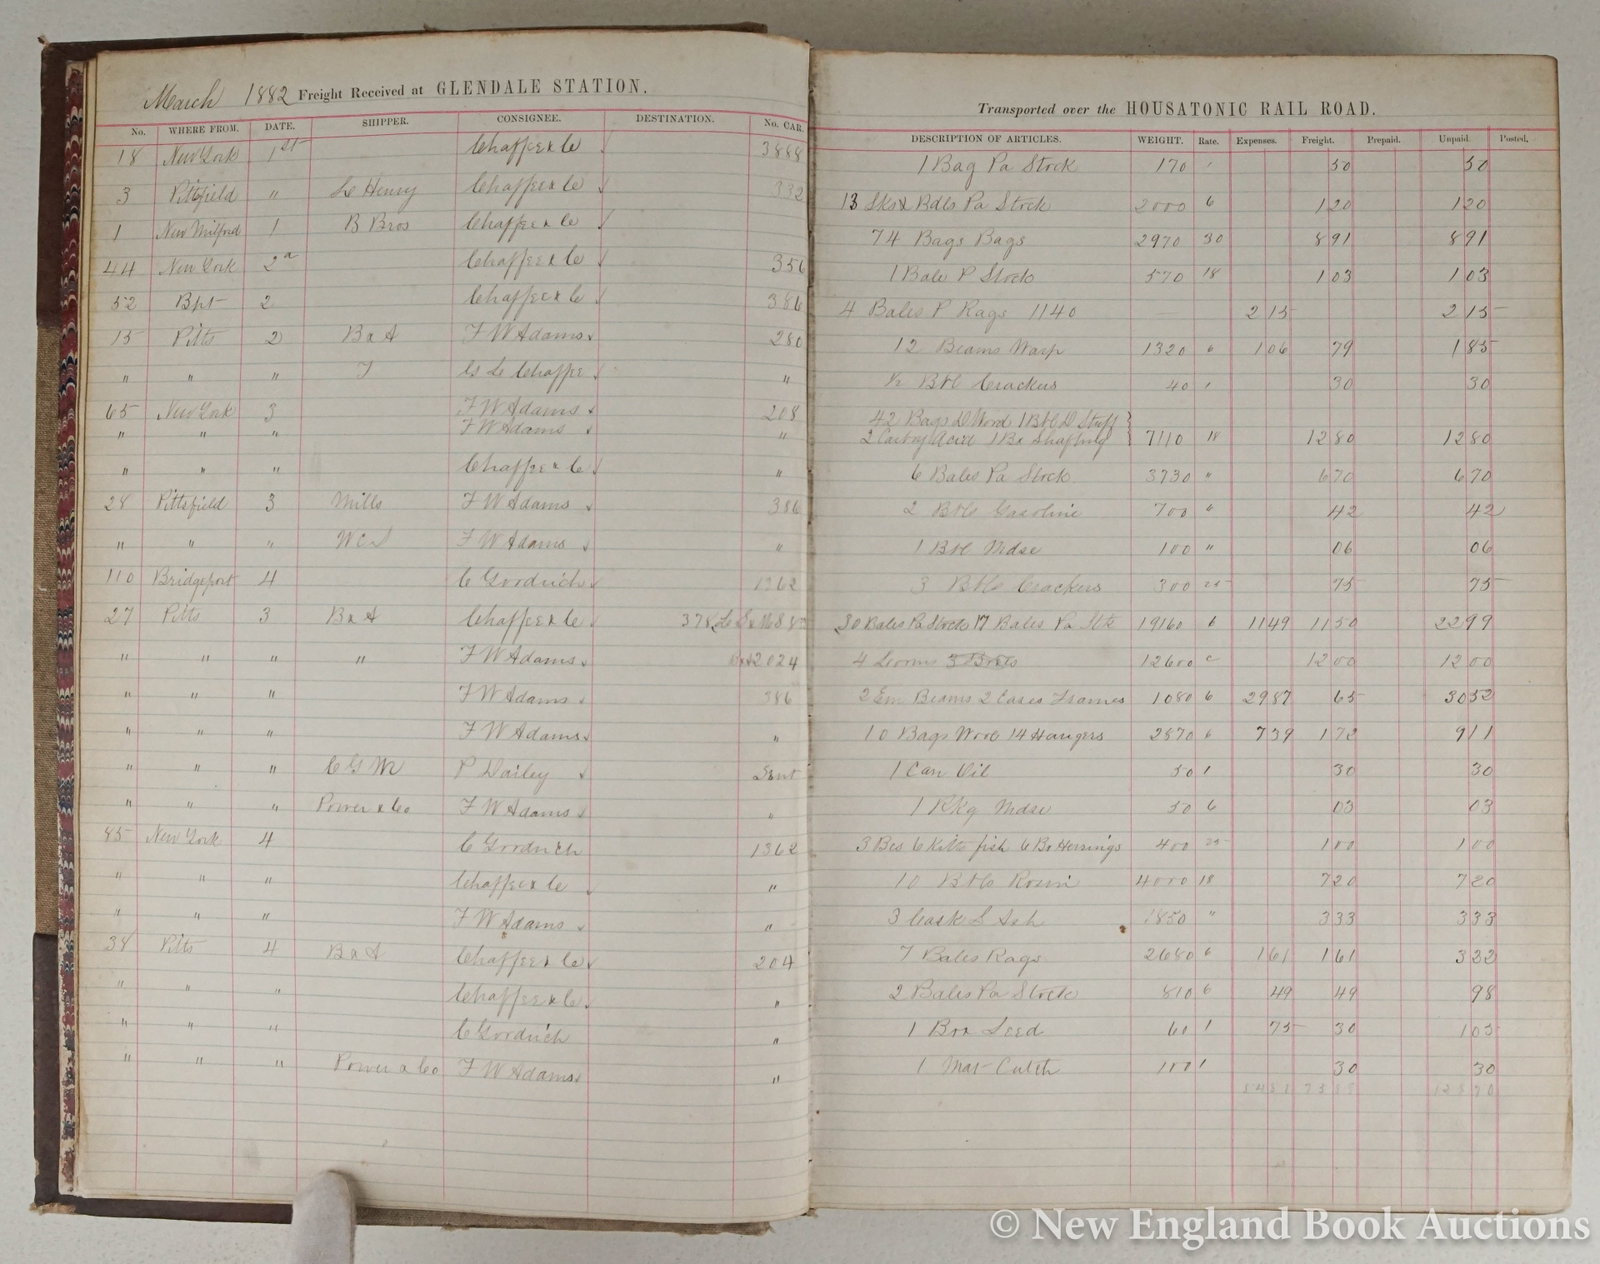 March 1882 Freight Received at GLENDALE STATION.
No. WHERE FROM. DATE. SHIPPER. CONSIGNEE. DESTINATION. No. CAR.
18 New York 1st Chaffee & Co 3888
3 Pittsfield " Henry Chaffee & Co 332
1 New Milford 1 B Bros Chaffee & Co
44 New York 2 Chaffee & Co 356
52 Bpt 2 Chaffee & Co 386
15 Pitts 2 B & A F W Adams 280
" " " T Chaffee "
65 New York 3 F W Adams 208
" " " F W Adams "
" " " Chaffee & Co "
28 Pittsfield 3 Mills F W Adams 386
" " " F W Adams "
110 Bridgeport 4 C Goodrich 1362
27 Pitts 3 B & A Chaffee & Co
" " " " F W Adams 2024
" " " F W Adams 386
" " " F W Adams "
" " " C G P Dailey
" " " Power & Co F W Adams "
85 New York 4 C Goodrich 1362
" " " Chaffee & Co "
" " " F W Adams "
38 Pitts 4 B & A Chaffee & Co 204
" " " Chaffee & Co "
" " " C Goodrich "
" " " Power & Co F W Adams "
Transported over the HOUSATONIC RAIL ROAD.
DESCRIPTION OF ARTICLES. WEIGHT. Rate. Expenses. Freight. Prepaid. Unpaid. Posted.
1 Bag Pa Stock 170 1 50 50
13 Sks & Bdls Pa Stock 2000 6 120 120
74 Bags Bags 2970 30 891 891
1 Bale P Stock 570 18 103 103
4 Bales P Rags 1140 215 215
12 Beams Warp 1320 6 106 79 185
½ Bbl Crackers 40 1 30 30
42 Bags D Wood 1 Bbl D Stuff
2 Carboy Acid 1 Bx Shafting 7110 18 1280 1280
6 Bales Pa Stock 3730 " 670 670
2 Bbls Gasoline 700 " 42 42
1 Bbl Mdse 100 " 06 06
3 Bbls Crackers 300 25 75 75
30 Bales Pa Stock 17 Bales Pa 19160 6 1149 1150 2299
4 Looms 12600 1200 1200
2 Em Beams 2 Cases Frames 1080 6 2987 65 3052
10 Bags Wool 14 Hangers 2870 6 739 172 911
1 Can Oil 50 1 30 30
1 Pkg Mdse 50 6 03 03
3 Bxs 6 Kitts fish 6 Bx Herrings 400 25 100 100
10 Bbls Rosin 4000 18 720 720
3 Cask S Ash 1850 " 333 333
7 Bales Rags 2680 6 161 161 322
2 Bales Pa Stock 810 6 49 49 98
1 Box Seed 60 1 75 30 105
1 Mat Cutch 100 1 30 30
© New England Book Auctions